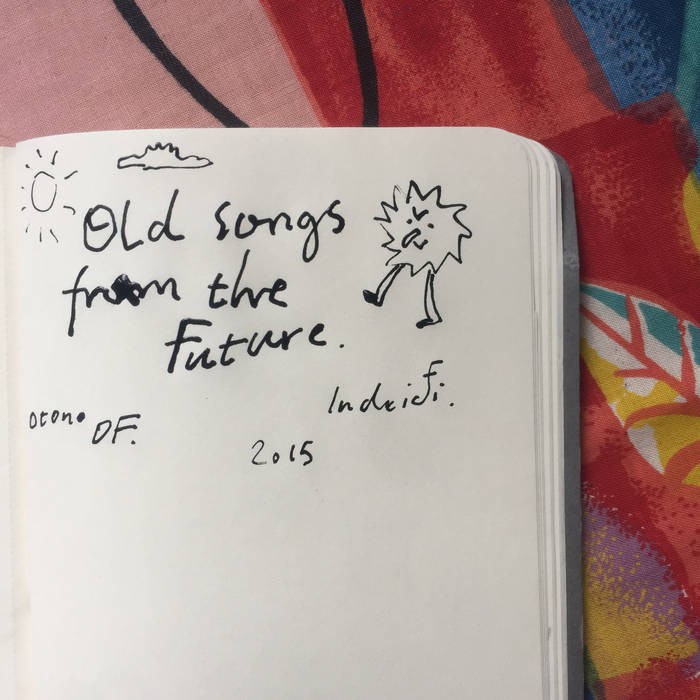 Old songs
from the
Future.
Indeifi.
Otono DF.
2015